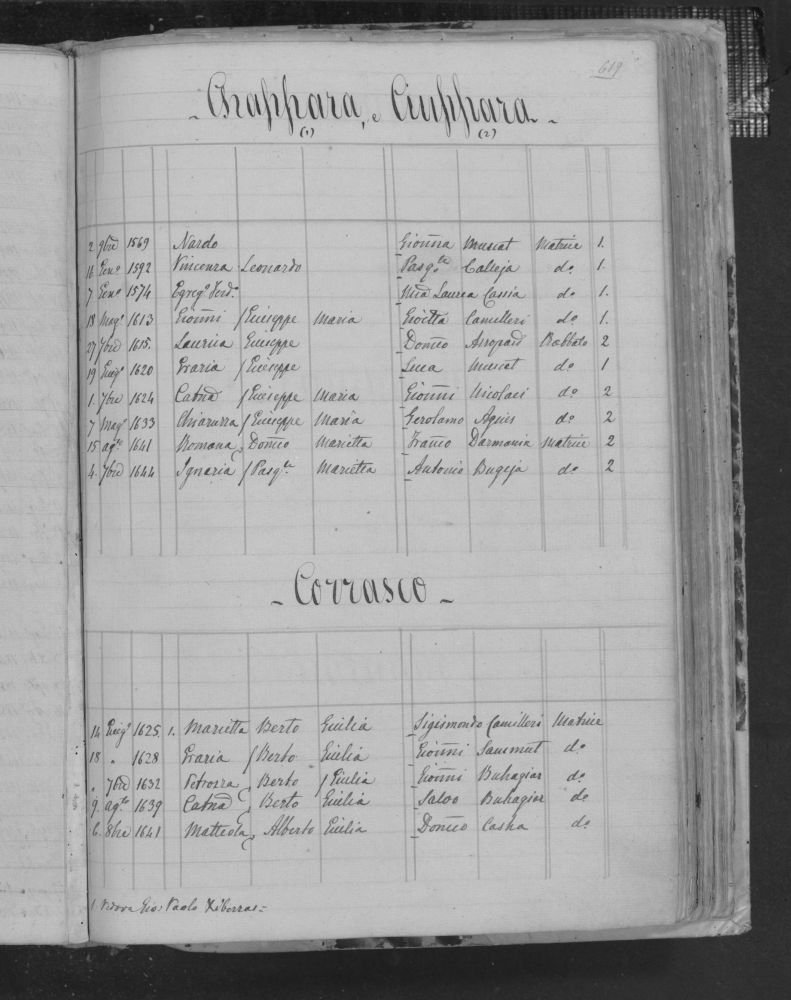 619
- Chappara, e Ciuppara -
(1) (2)
2 9bre 1569 Nardo Gioñna Muscat Matrice 1.
16 Genº 1592 Vincenza Leonardo Pasqle Calleja do 1.
7 Genº 1574 Egregº Ferdº Laurea Cassia do 1.
18 Magº 1613 Gioñni / Giuseppe Maria Camilleri do 1.
27 7bre 1615 Lauria Giuseppe Domco Axopard Rabbato 2
19 Giugº 1620 Grazia / Giuseppe Luca Muscat do 1
1. 7bre 1624 Catna / Giuseppe Maria Gioñni Nicolaci do 2
7 Magº 1633 Chiaruzza / Giuseppe Maria Gerolamo Agius do 2
15 agto 1641 Romana, Domco Marietta Franco Darmania Matrice 2
4. 7bre 1644 Ignazia / Pasqle Marietta Antonio Bugeja do 2
- Corrasco -
14 Giugº 1625 1. Marietta Berto Giulia Sigismondo Camilleri Matrice
18 „ 1628 Grazia / Berto Giulia Gioñni Sammut do
„ 7bre 1632 Petrozza, Berto / Giulia Gioñni Buhagiar do
9. agto 1639 Catna, Berto Giulia Salvo Buhagiar do
6. 8bre 1641 Matteola, Alberto Giulia Domco Casha do
1 Vedova Gio: Paolo Xiberras =